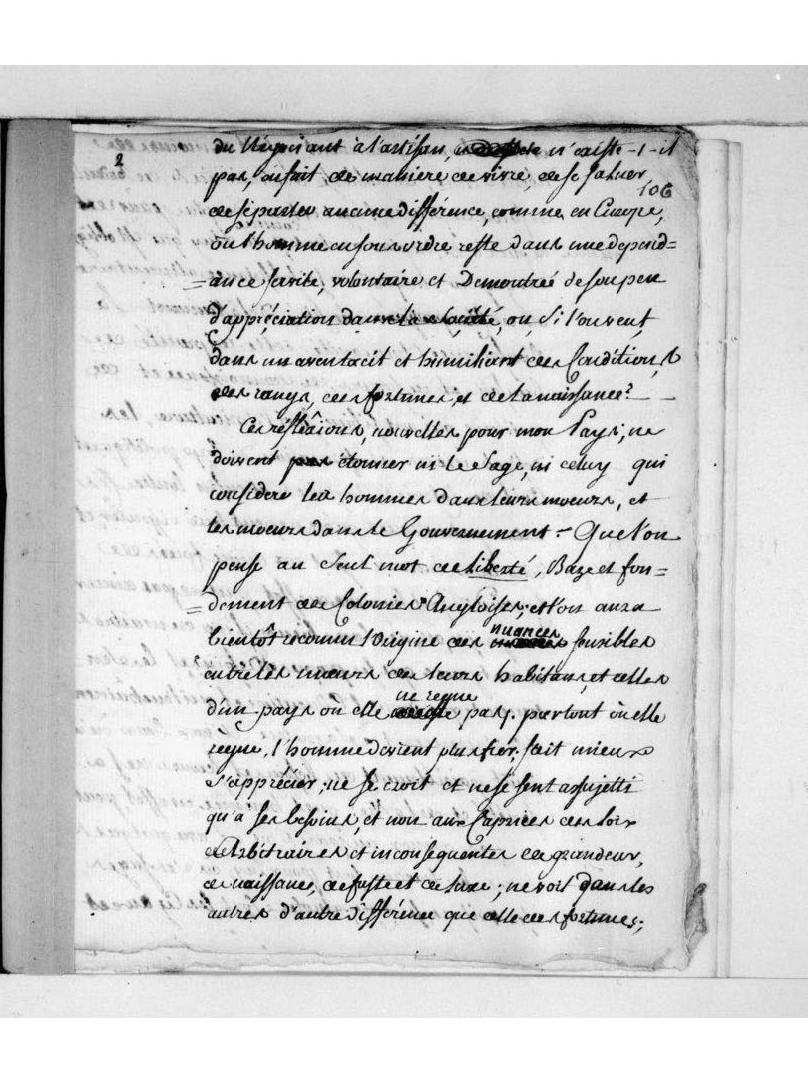 2
du Négociant à l'artisan, n'existe-t-il
106
pas, en fait de maniere de vivre, de se saluer,
de se parler aucune différence, comme en Europe,
ou l'homme en sous ordre reste dans une depend=
=ance servile, volontaire et Demontrée de son peu
d'appréciation dans la société, ou si l'on veut
dans un aveu tacit et humiliant des Conditions,
des rangs, des fortunes, et de la naissance?
Ces réflexions, nouvelles pour mon Pays, ne
doivent pas étonner ni le Sage, ni celuy qui
considere les hommes dans leurs moeurs, et
les moeurs dans le Gouvernement. Que l'on
pense au seul mot de liberté, Baze et fon=
=dement des Colonies Angloises, et l'on aura
nuances
bientôt reconnu l'Origine des sensibles
entre les moeurs de leurs habitans, et celles
ne regne
d'un pays où elle pas. partout où elle
règne, l'homme devient plus fier, sait mieux
s'apprécier; ne se croit et ne se sent assujetti
qu'à ses besoins, et non aux Caprices des loix
Arbitraires et inconsequentes de grandeur,
de naissance, de faste et de luxe; ne voit dans les
autres d'autre différence que celle des fortunes;